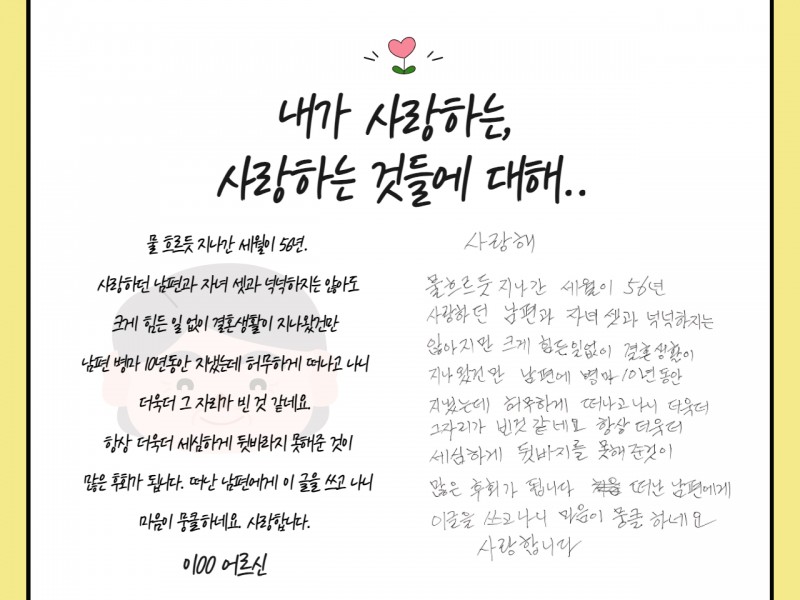 내가 사랑하는,
사랑하는 것들에 대해..
물 흐르듯 지나간 세월이 56년.
사랑하던 남편과 자녀 셋과 넉넉하지는 않아도
크게 힘든 일 없이 결혼생활이 지나왔건만
남편 병마 10년동안 지냈는데 허무하게 떠나고 나니
더욱더 그 자리가 빈 것 같네요
항상 더욱더 세심하게 뒷바라지 못해준 것이
많은 후회가 됩니다. 떠난 남편에게 이 글을 쓰고 나니
마음이 뭉클하네요. 사랑합니다.
이00 어르신
사랑해
물흐르듯 지나간 세월이 56년
사랑하던 남편과 자녀셋과 넉넉하지는
않아지만 크게 힘든일없이 결혼생활이
지나왔건만 남편에 병마 10년동안
지냈는데 허무하게 떠나고나니 더욱더
그자리가 빈것 같네요 항상 더욱더
세심하게 뒷바지를 못해준것이
많은 후회가 됩니다 떠난 남편에게
이글을 쓰고나니 마음이 뭉클하네요
사랑합니다